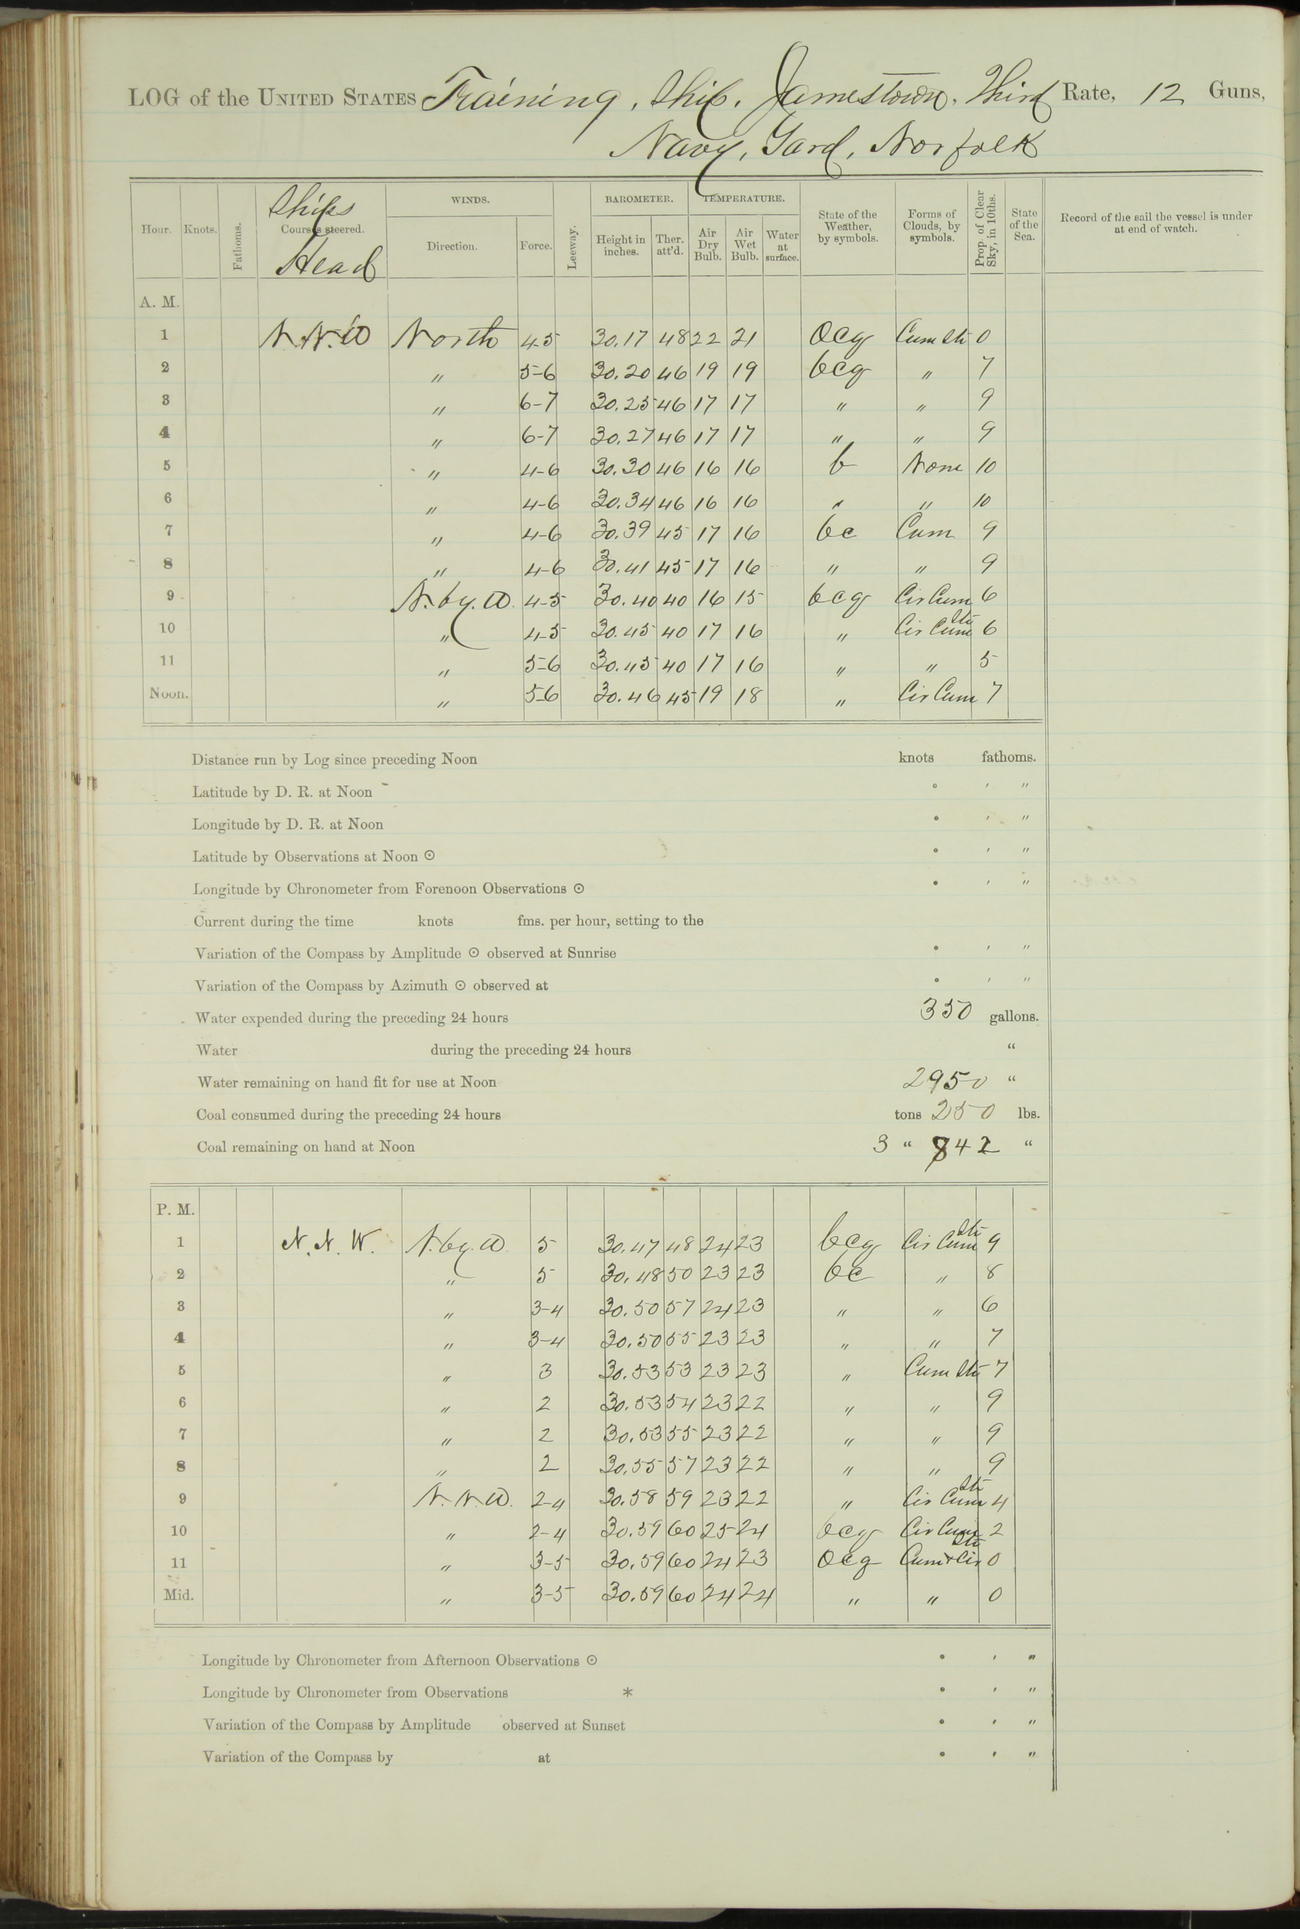 LOG of the UNITED STATES Training Ship Jamestown, Third Rate, 12 Guns,
Navy Yard, Norfolk
Hour. Knots. Fathoms. Courses steered. Ships Head WINDS. Direction. Force. Leeway. BAROMETER. Height in inches. Ther. att'd. TEMPERATURE. Air Dry Bulb. Air Wet Bulb. Water at surface. State of the Weather, by symbols. Forms of Clouds, by symbols. Prop. of Clear Sky, in 10ths. State of the Sea. Record of the sail the vessel is under at end of watch.
A. M.
1 N.N.W North 4-5 30.17 48 22 21 ocg Cum Str 0
2 " 5-6 30.20 46 19 19 bcg " 7
3 " 6-7 30.25 46 17 17 " " 9
4 " 6-7 30.27 46 17 17 " " 9
5 " 4-6 30.30 46 16 16 b None 10
6 " 4-6 30.34 46 16 16 " " 10
7 " 4-6 30.39 45 17 16 bc Cum 9
8 " 4-6 30.41 45 17 16 " " 9
9 N. by. W. 4-5 30.40 40 16 15 bcg Cir Cum 6
10 " 4-5 30.45 40 17 16 " Cir Cum Str 6
11 " 5-6 30.45 40 17 16 " " 5
Noon. " 5-6 30.46 45 19 18 " Cir Cum 7
Distance run by Log since preceding Noon knots fathoms.
Latitude by D. R. at Noon ° ' "
Longitude by D. R. at Noon ° ' "
Latitude by Observations at Noon ☉ ° ' "
Longitude by Chronometer from Forenoon Observations ☉ ° ' "
Current during the time knots fms. per hour, setting to the
Variation of the Compass by Amplitude ☉ observed at Sunrise ° ' "
Variation of the Compass by Azimuth ☉ observed at ° ' "
Water expended during the preceding 24 hours 350 gallons.
Water during the preceding 24 hours "
Water remaining on hand fit for use at Noon 2950 "
Coal consumed during the preceding 24 hours tons 250 lbs.
Coal remaining on hand at Noon 3 " 842 "
P. M.
1 N. N. W. N. by W 5 30.47 48 24 23 bcg Cir Cum Str 9
2 " 5 30.48 50 23 23 bc " 8
3 " 3-4 30.50 57 24 23 " " 6
4 " 3-4 30.50 55 23 23 " " 7
5 " 3 30.53 53 23 23 " Cum Str 7
6 " 2 30.53 54 23 22 " " 9
7 " 2 30.53 55 23 22 " " 9
8 " 2 30.55 57 23 22 " " 9
9 N. N. W. 2-4 30.58 59 23 22 " Cir Cum Str 4
10 " 2-4 30.59 60 25 24 bcg Cir Cum 2
11 " 3-5 30.59 60 24 23 ocg Cum + Cir Str 0
Mid. " 3-5 30.59 60 24 24 " " 0
Longitude by Chronometer from Afternoon Observations ☉ ° ' "
Longitude by Chronometer from Observations * ° ' "
Variation of the Compass by Amplitude observed at Sunset ° ' "
Variation of the Compass by at ° ' "